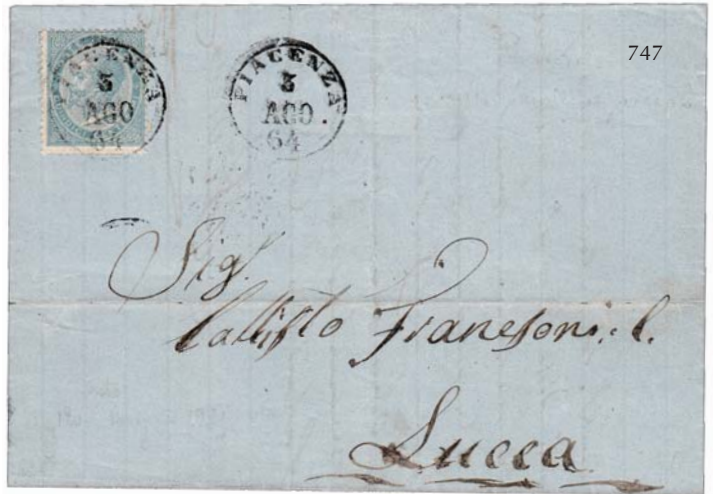 747
PIACENZA
5
AGO
64
PIACENZA
5
AGO
64
Sig.
Callisto Francesoni. l.
Lucca